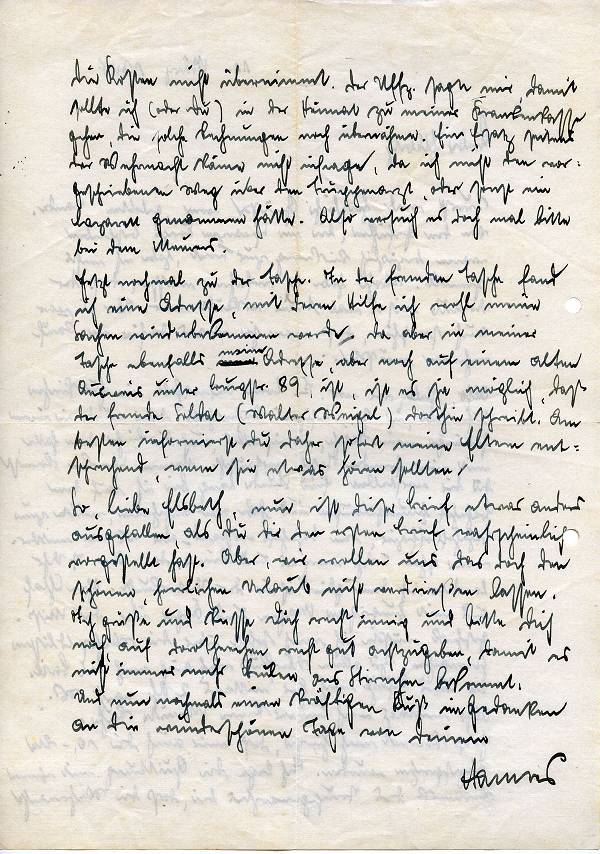 die Kosten nicht übernimmt. Der Uffz. sagte mir damit
sollte ich (oder Du) in der Heimat zu meiner Krankenkasse
gehen, die solche Rechnungen noch übernähme. Ein Ersatz seitens
der Wehrmacht käme nicht infrage, da ich nicht den vor-
geschriebenen Weg über den Truppenarzt, oder sonst ein
Lazarett genommen hätte. Also versuch es doch mal bitte
bei dem
Jetzt nochmal zu der Tasche. In der fremden Tasche fand
ich eine Adresse, mit deren Hilfe ich wohl meine
Sachen wiederbekommen werde. Da aber in meiner
Tasche ebenfalls meine Adresse, aber noch auf einem alten
Ausweis unter 89, ist, ist es ja möglich, daß
der fremde Soldat (Walter Weigel) dorthin schreibt. Am
besten informierst Du daher sofort meine Eltern ent-
sprechend, wenn sie etwas hören sollten!
So, liebe Elsbeth, nun ist dieser Brief etwas anders
ausgefallen, als Du Dir den ersten Brief wahrscheinlich
vorgestellt hast. Aber, wir wollen uns das doch den
schönen, herrlichen Urlaub nicht verdrießen lassen.
Ich grüße und küsse Dich recht innig und bitte Dich
noch auf recht gut achtzugeben, damit es
nicht immer mehr Beulen ans Hirnchen bekommt.
Und nun nochmals einen kräftigen Kuß in Gedanken
an die wunderschönen Tage von Deinem
Hannes